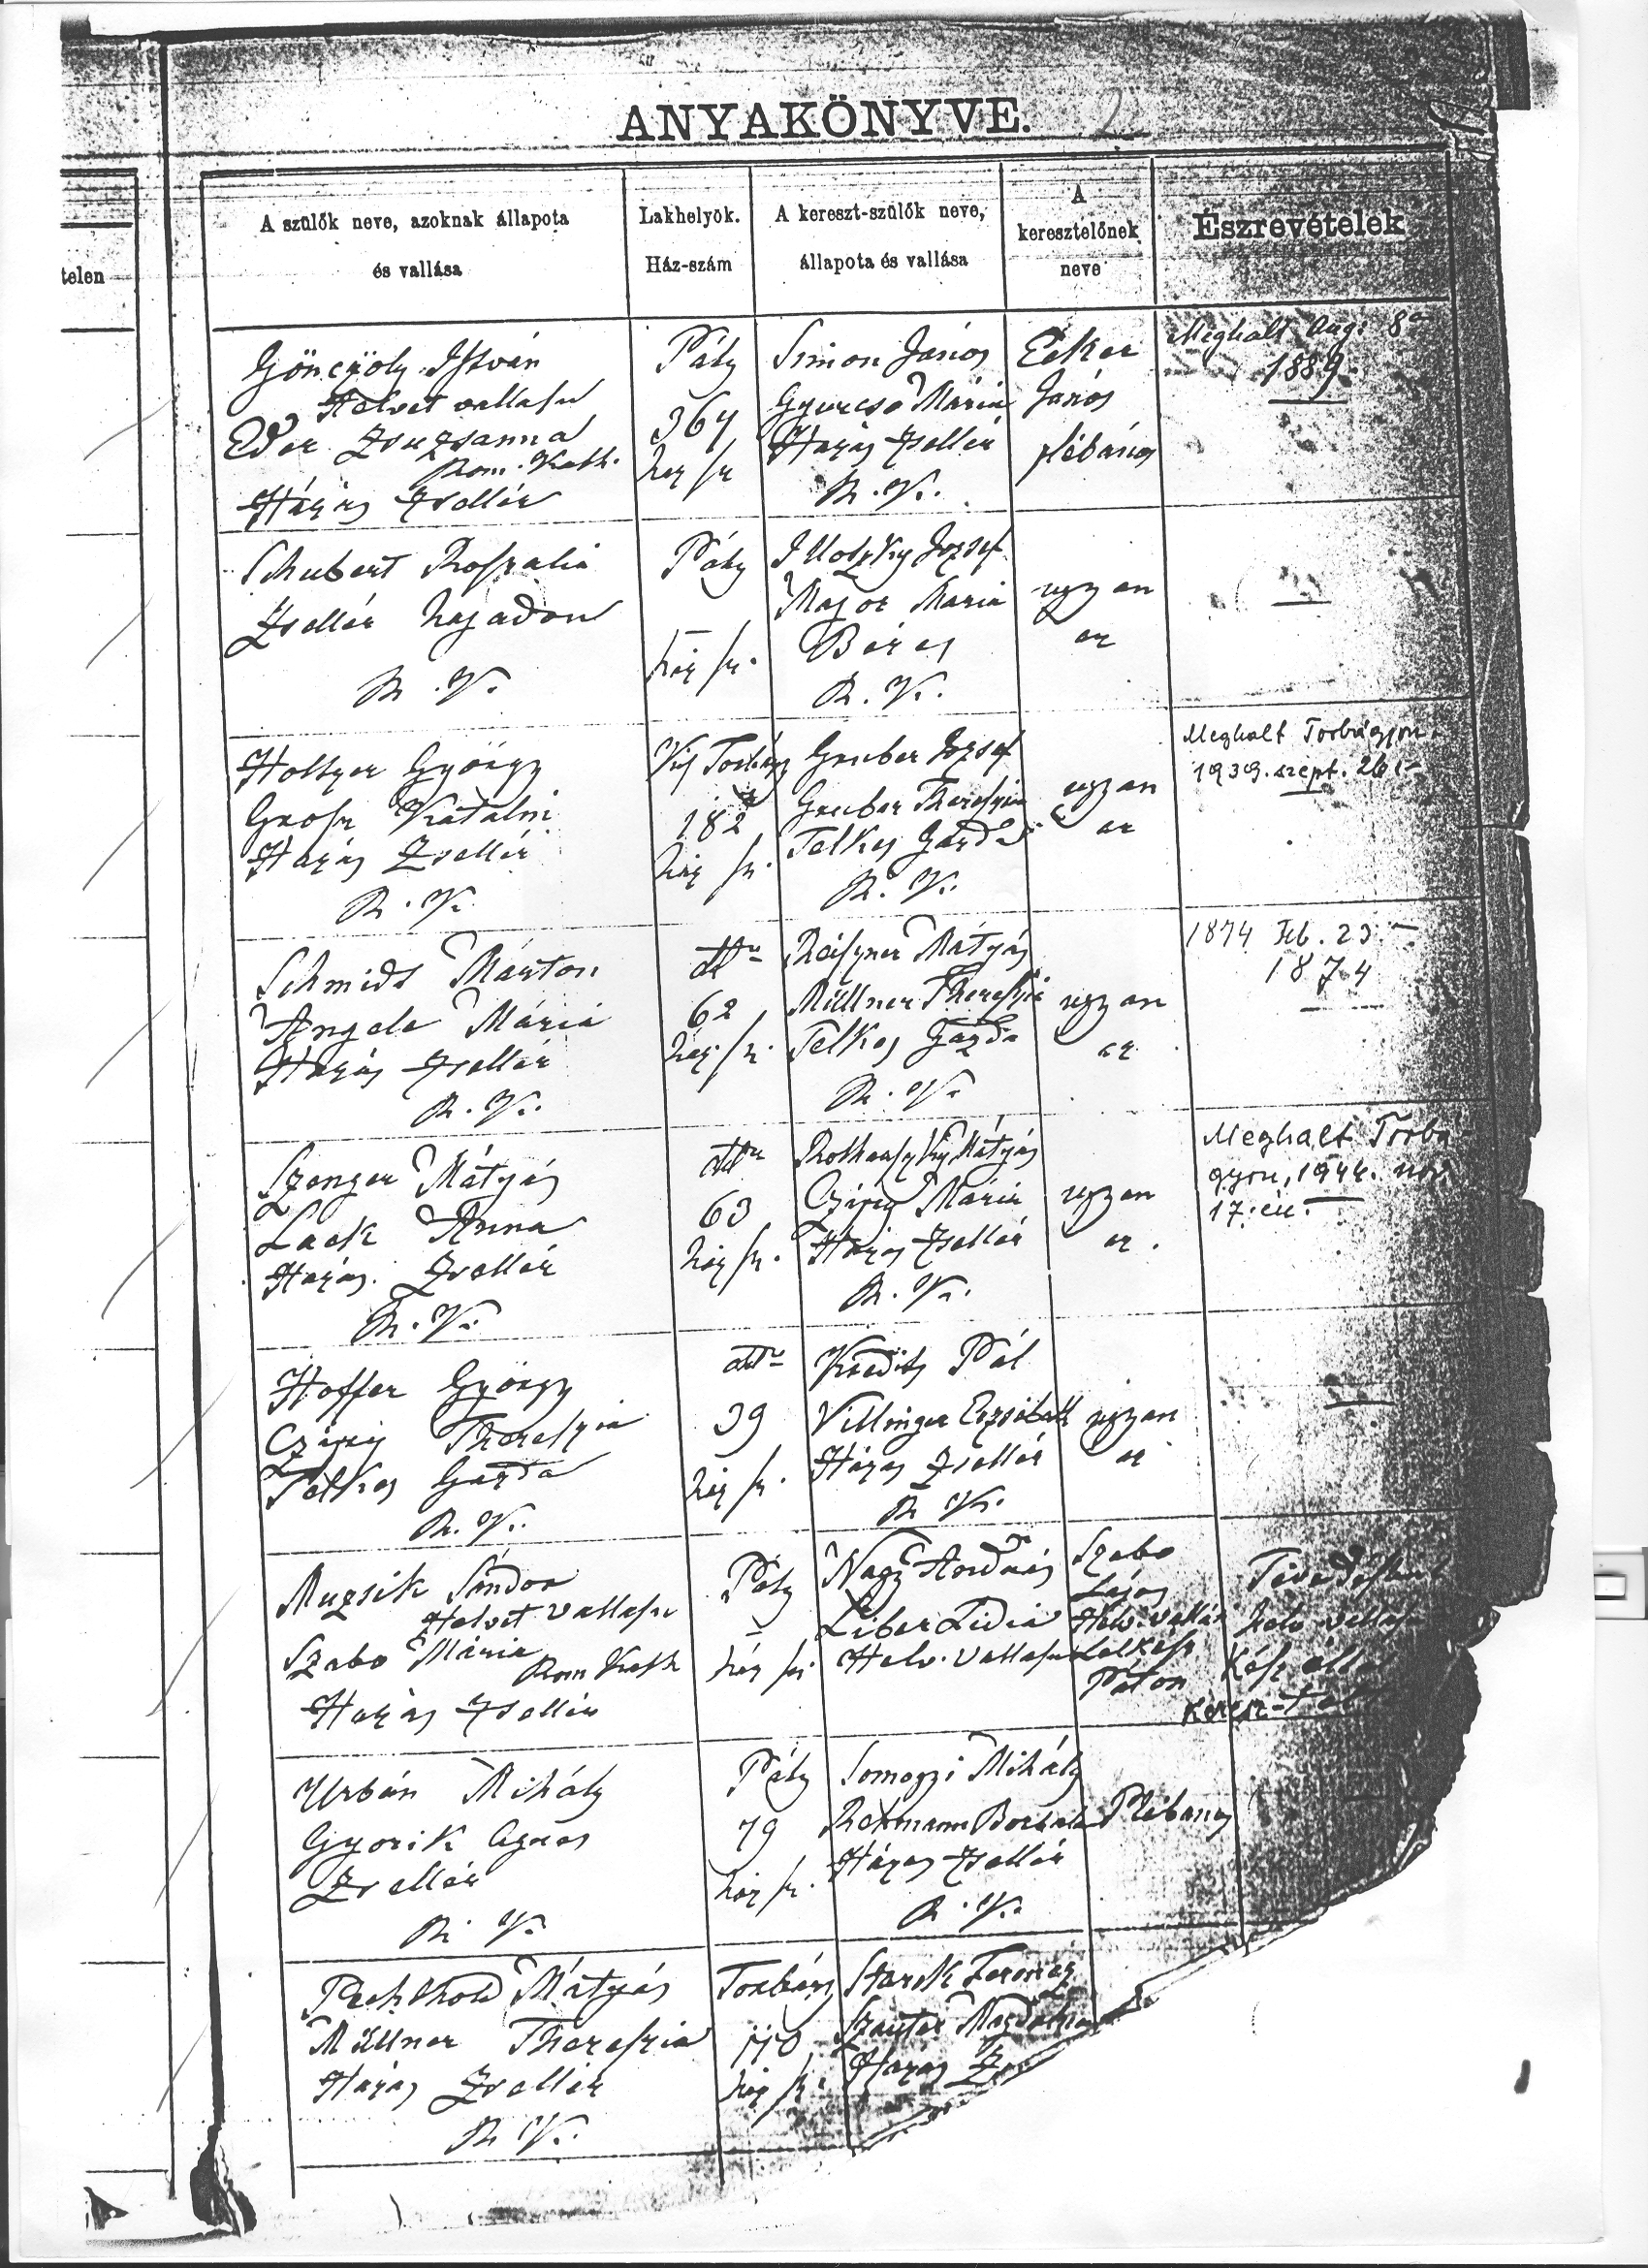 ANYAKÖNYVE. 2
telen
A szülők neve, azoknak állapota
és vallása
Lakhelyök.
Ház-szám
A kereszt-szülők neve,
állapota és vallása
A
keresztelőnek
neve
Észrevételek
Göncżöly István
Helvét vallásu
Eder Zsuzsanna
Rom. Kath.
Házas Zsellér
Páty
364
ház sz
Simon János
Gyurcso Mária
Házas Zsellér
R. K.
Ecker
János
plébános
Meghalt Aug. 8án
1889.
Schubert Roszalia
Zsellér hajadon
R. K.
Páty
—
ház sz.
Illoszky Jozsef
Major Maria
Béres
R. K.
ugyan
az
—
Holtzer György
Grosz Katalin
Házas Zsellér
R. K.
Kis Torbágy
182
ház sz.
Gruber Jozsef
Gruber Thereszia
Telkes Gazda
R. K.
ugyan
az
Meghalt Torbágyon
1939. szept. 26.
Schmidt Márton
Angele Mária
Házas Zsellér
R. K.
dtto
62
ház sz.
Reiszner Mátyás
Müllner Thereszia
Telkes Gazda
R. K.
ugyan
az
1874 Feb. 23.
1874
Szenger Mátyás
Lack Anna
Házas Zsellér
R. K.
dtto
63
ház sz.
Mátyás
Czipri Mária
Házas Zsellér
R. K.
ugyan
az.
Meghalt Torbá
gyon, 1944. nov.
17.-én.
Hoffer György
Czipri Thereszia
Telkes Gazda
R. K.
dtto
39
ház sz.
Pál
Villinger Erzsébeth
Házas Zsellér
R. K.
ugyan
az
Muzsik Sándor
Helvét vallásu
Szabo Mária
Rom Kath
Házas Zsellér
Páty
—
ház sz
Nagy András
Liber Lidia
Helv. vallásu
Szabo
Lajos
Helv. vallás
Lelkész
Pátyon
helv vallásu
Urbán Mihály
Gyorik Agnes
Zsellér
R. K.
Páty
79
ház sz.
Somogyi Mihály
Házas Zsellér
R. K.
Plébanos
Mátyás
Müllner Thereszia
Házas Zsellér
R K.
Torbágy
110
ház sz.
Starck Ferencz
Szauter Magdolna
Házas